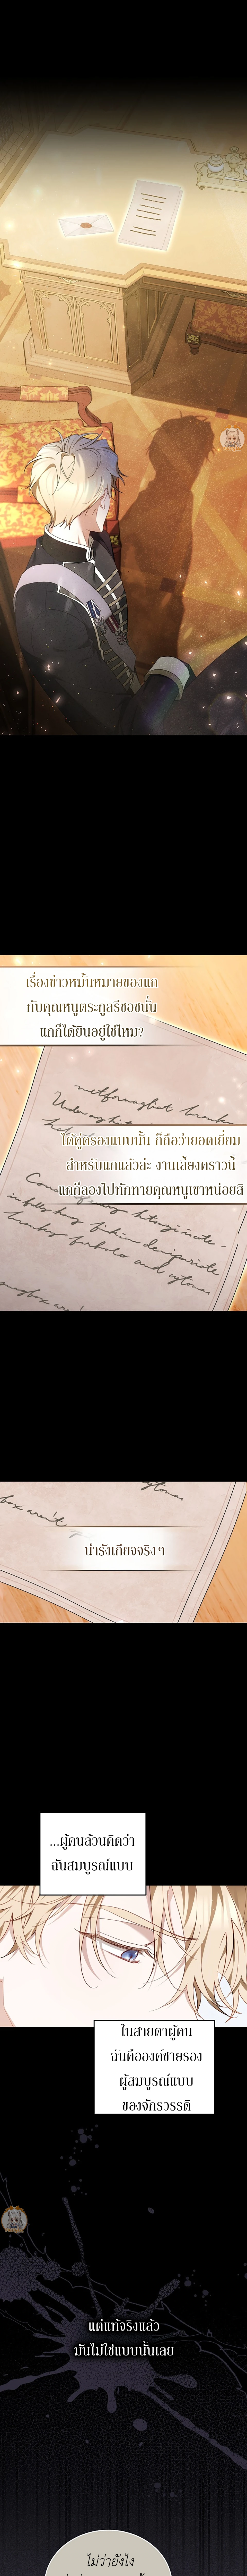 เรื่องข่าวหมั้นหมายของแก
กับคุณหนูตระกูลรีชอชนั่น
แกก็ได้ยินอยู่ใช่ไหม?
ได้คู่ครองแบบนั้น ก็ถือว่ายอดเยี่ยม
สำหรับแกแล้วล่ะ งานเลี้ยงคราวนี้
แกก็ลองไปทักทายคุณหนูเขาหน่อยสิ
น่ารังเกียจจริงๆ
...ผู้คนล้วนคิดว่า
ฉันสมบูรณ์แบบ
ในสายตาผู้คน
ฉันคือองค์ชายรอง
ผู้สมบูรณ์แบบ
ของจักรวรรดิ
แต่แท้จริงแล้ว
มันไม่ใช่แบบนั้นเลย
ไม่ว่ายังไง